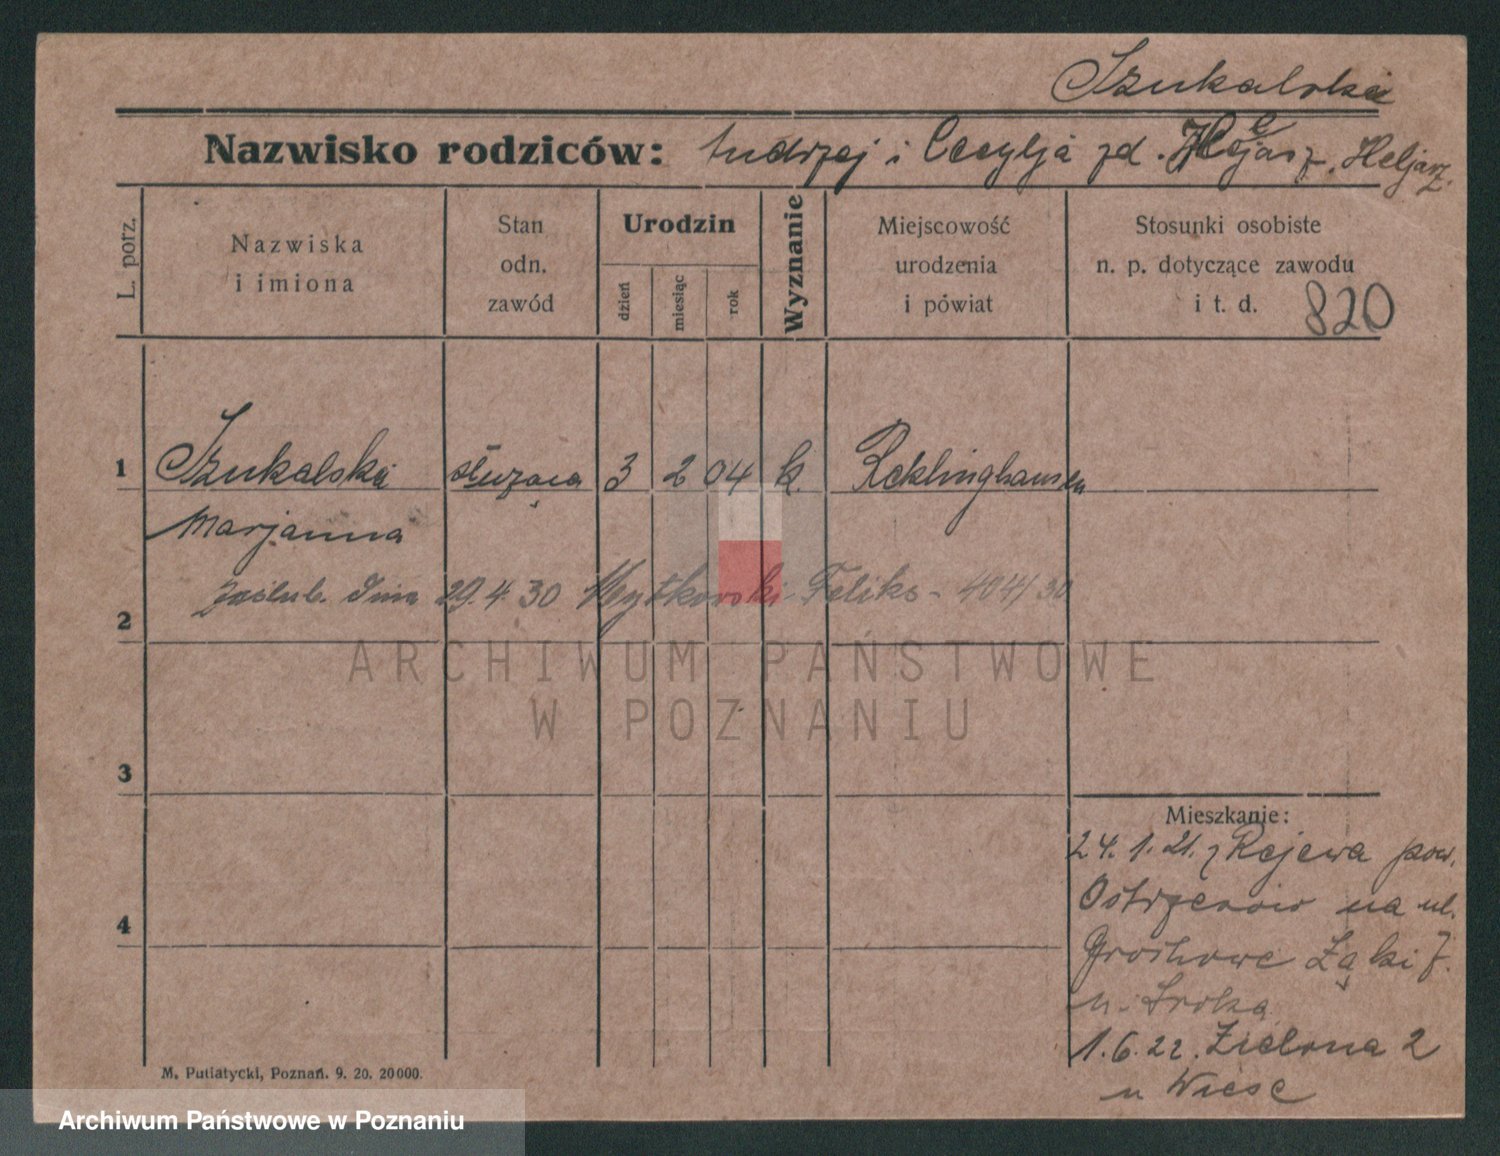 Szukalska
Nazwisko rodziców: Andrzej i Cecylja zd. Heljasz
L. porz.
Nazwiska
i imiona
Stan
odn.
zawód
Urodzin
dzień
miesiąc
rok
Wyznanie
Miejscowość
urodzenia
i pówiat
Stosunki osobiste
n. p. dotyczące zawodu
i t. d. 820
1 Szukalska służąca 3 2 04 k. Reklinghausen
Marjanna
zaślub. dnia 29.4.30 Feliks - 404/30
2
3
4
Mieszkanie:
24.1.21. z Rejewa pow.
Ostrzeszów na ul.
Grochowe Łąki 7.
u. Sroka
1.6.22. Zielona 2
u Wiese
M. Putiatycki, Poznań. 9. 20. 20000.
ARCHIWUM PAŃSTWOWE
W POZNANIU
Archiwum Państwowe w Poznaniu